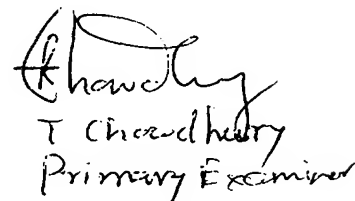 TChowdhury
T Chowdhury
Primary Examiner